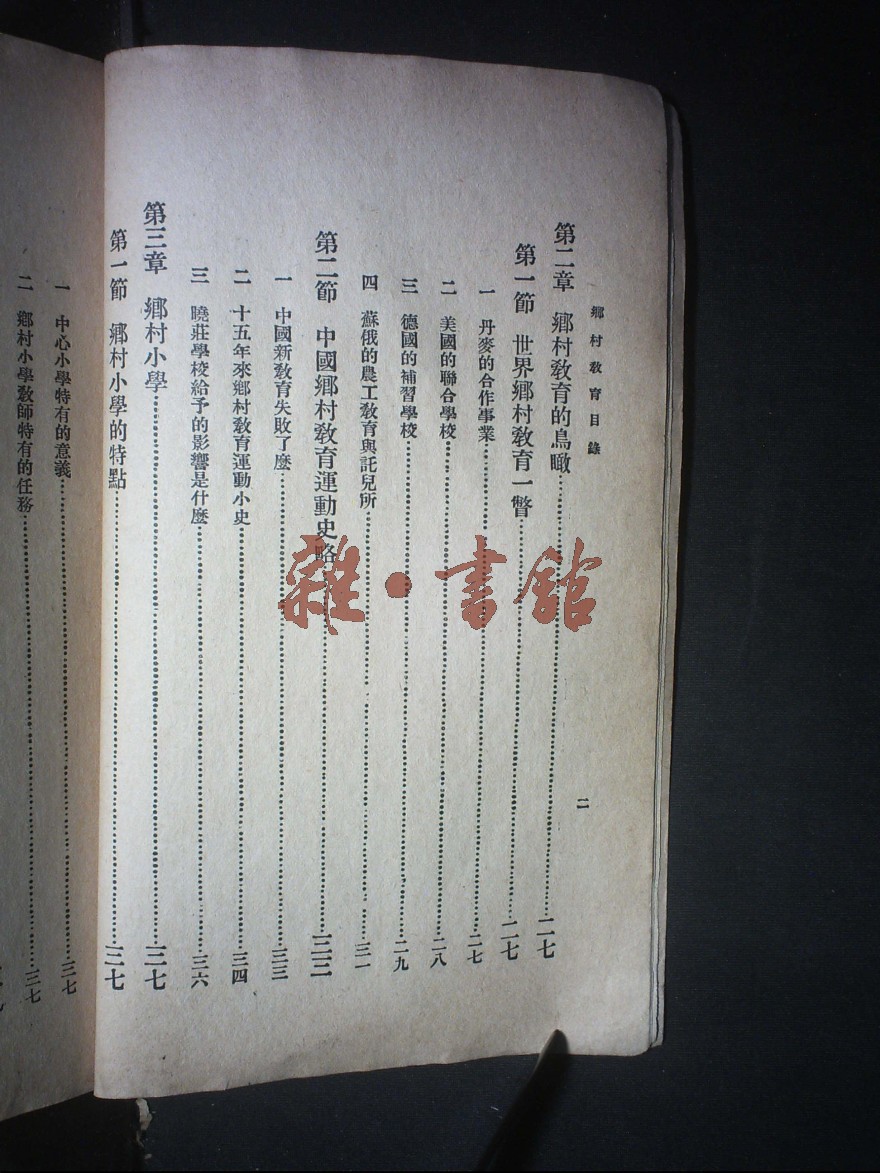 鄉村教育目錄
二
第二章　鄉村教育的鳥瞰……二七
第一節　世界鄉村教育一瞥……二七
一　丹麥的合作事業……二七
二　美國的聯合學校……二八
三　德國的補習學校……二九
四　蘇俄的農工教育與託兒所……三一
第二節　中國鄉村教育運動史略……三三
一　中國新教育失敗了麼……三三
二　十五年來鄉村教育運動小史……三四
三　曉莊學校給予的影響是什麼……三六
第三章　鄉村小學……三七
第一節　鄉村小學的特點……三七
一　中心小學特有的意義……三七
二　鄉村小學教師特有的任務……三七
雜·書館